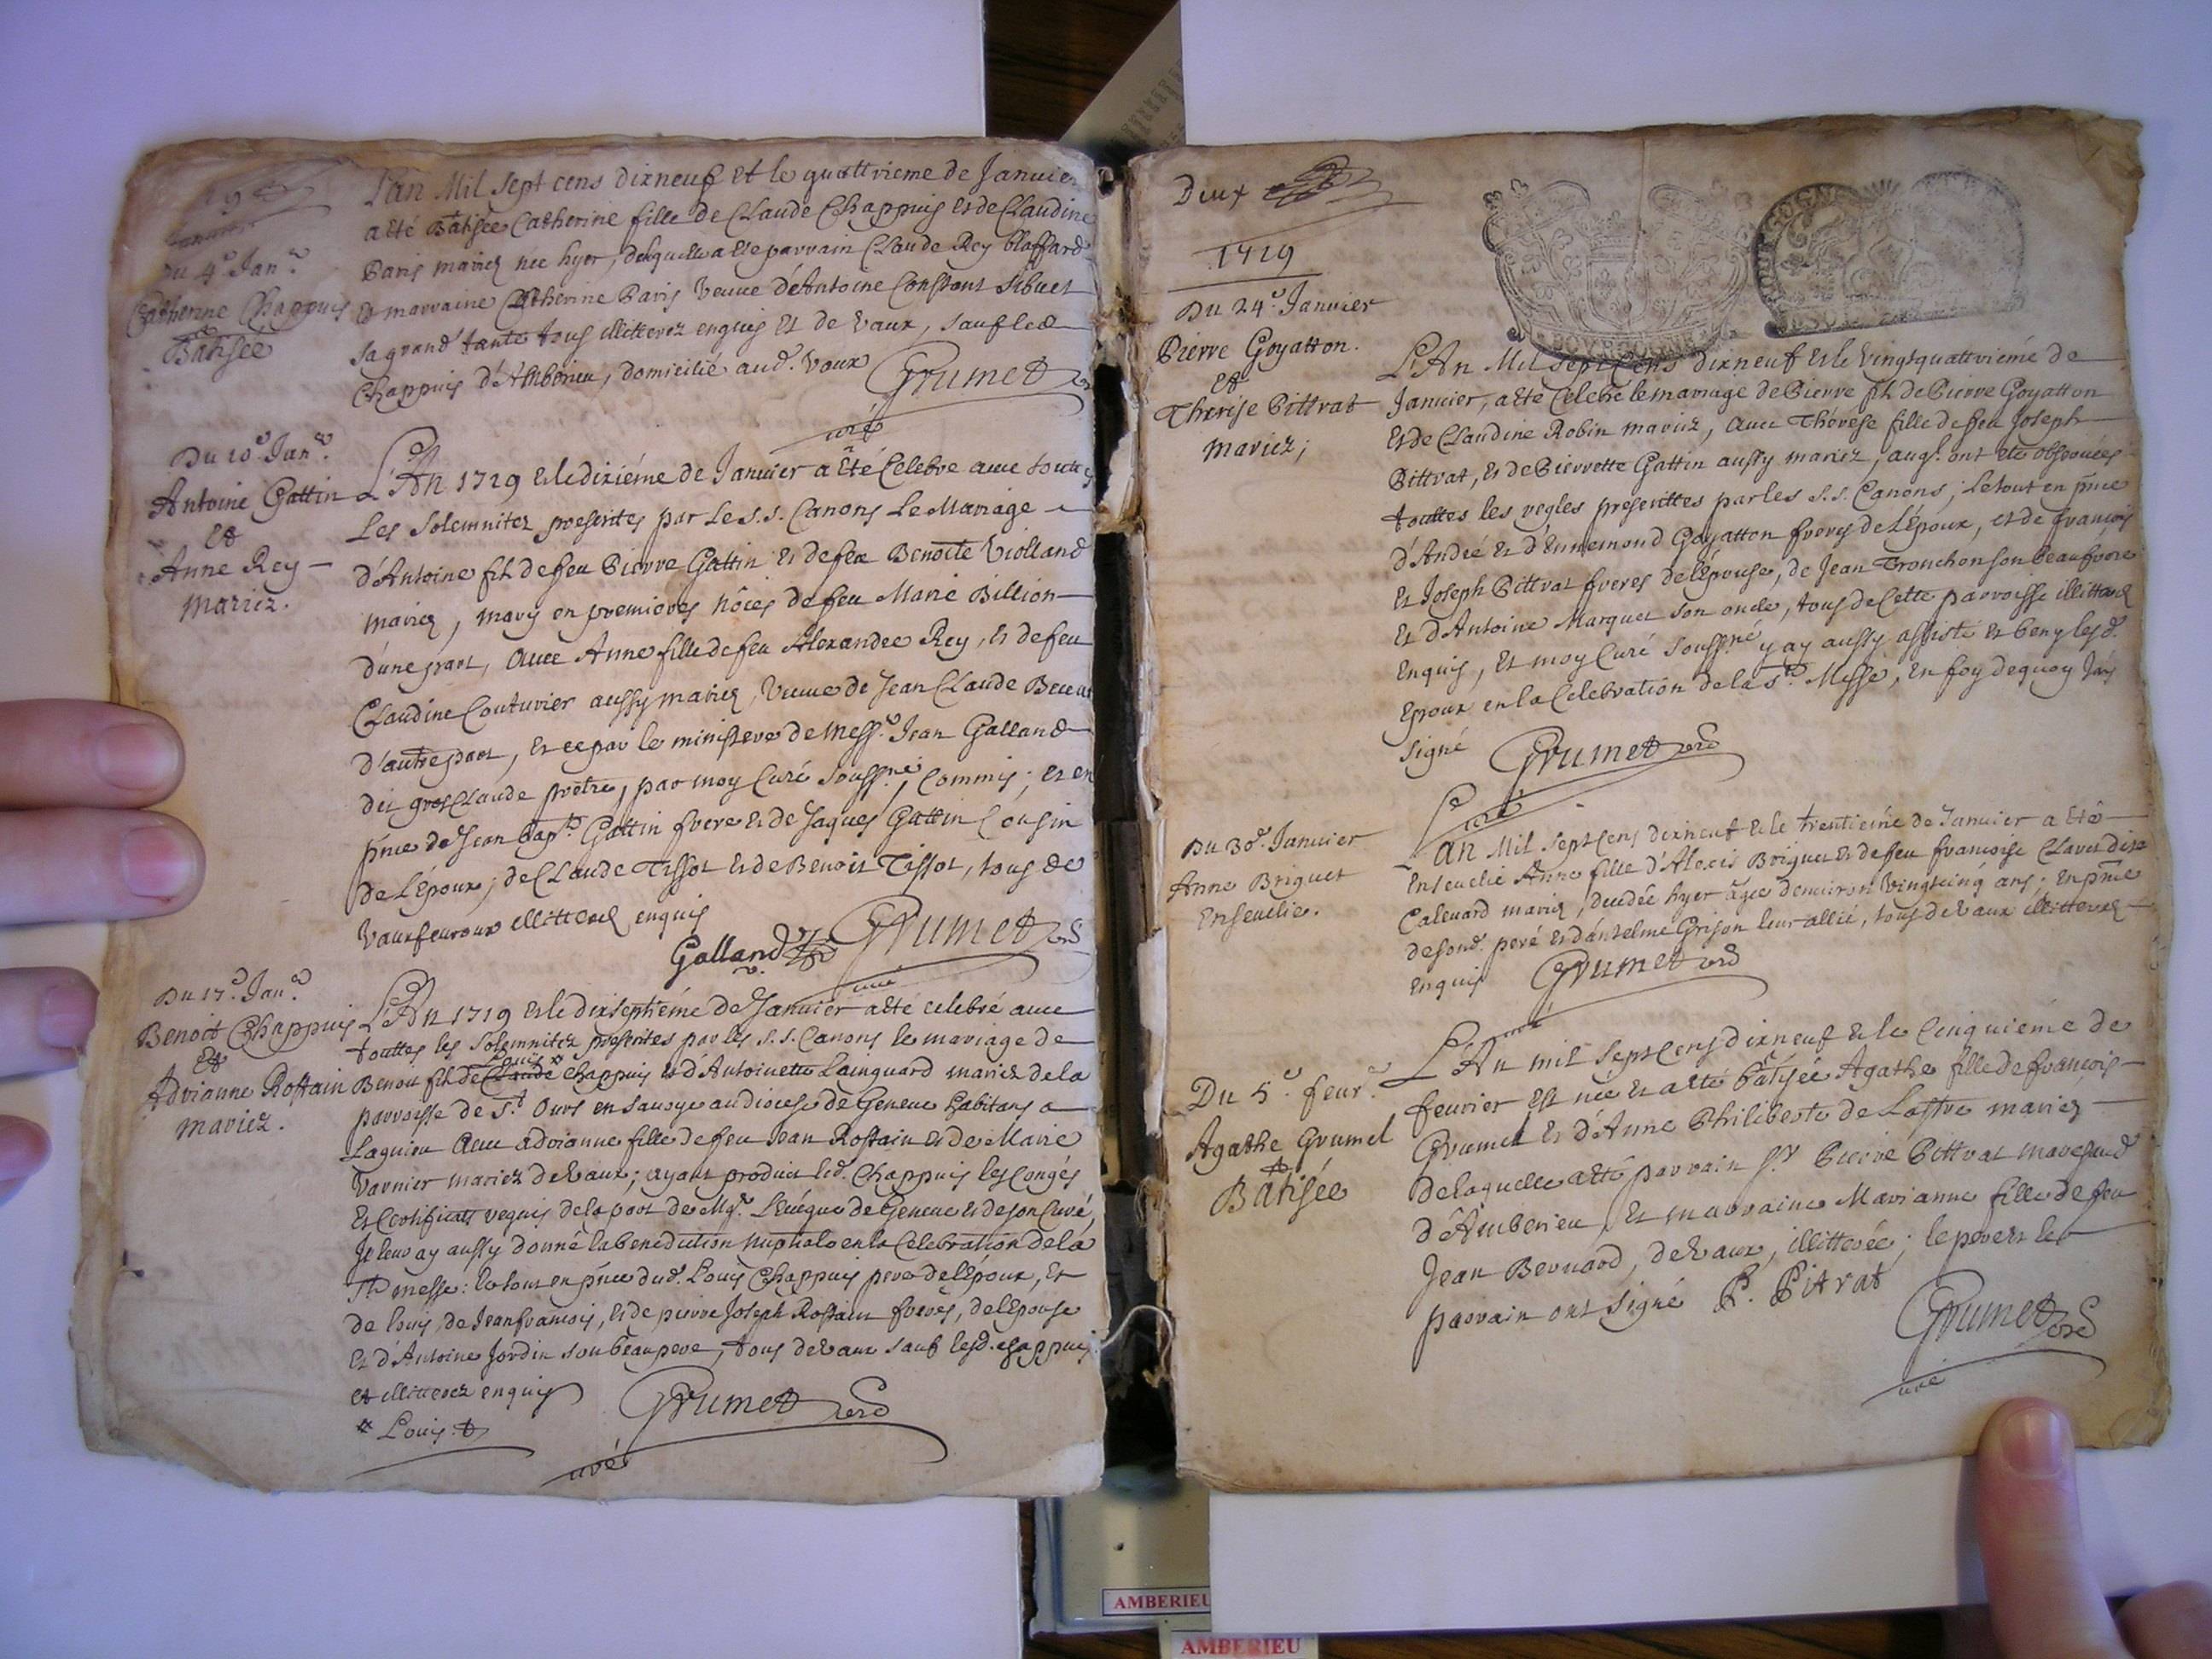 Du 4.e Jan.r
Catherine Chappuis
Batisée
L'an Mil sept cens dixneuf et le quattrieme de Janvier
a eté Batisée Catherine fille de Claude Chappuis et de Claudine
Paris mariez née hyer, de laquelle a eté parrain Claude Rey blaffard
et marraine Catherine Paris veuve d'Antoine Constant Sibuet
sa grand' tante tous illitterez enquis et de Vaux, sauf led
Chappuis d'Amberieu, domicilié aud. Vaux Grumet
curé
Du 10.e Jan.r
Antoine Gattin
et
Anne Rey
mariez.
L'An 1719 et le dixiéme de Janvier a eté Celebré avec toutes
les solemnitez prescrites par les S.S. Canons le Mariage
d'Antoine fils de feu Pierre Gattin et de feüe Benoite Violland
mariez, mary en premieres nôces de feu Marie Billion
d'une part, avec Anne fille de feu Alexandre Rey, et de feu
Claudine Couturier aussy mariez, veuve de Jean Claude
d'autre part, et ce par le ministere de Mess.e Jean Galland
dit gros Claude prêtre, par moy Curé souss.né commis; et en
pñce de Jean Bap.te Gattin frere et de Jaques Gattin Cousin
de l'Epoux; de Claude Tissot et de Benoit Tissot, tous de
Vaux illitterez enquis
Galland Grumet
curé
Du 17.e Jan.r
Benoit Chappuis
et
Adrianne Rostain
mariez.
L'An 1719 et le dixseptiéme de Janvier a eté celebré avec
touttes les solemnitez prescrites par les S.S. Canons le mariage de
Louis *
Benoit fils de Claude Chappuis et d'Antoinette Lainguard mariez de la
parroisse de S.t Ours en Savoye au diocese de Geneve habitans a
Lagnieu avec Adrianne fille de feu Jean Rostain et de Marie
Varnier mariez de Vaux; ayant produit led. Chappuis les Congés
et Certificats requis de la part de Mg.r l'Evêque de Geneve et de son Curé,
Je leur ay aussy donné la benediction nuptiale en la Celebration de la
S.te messe: le tout en pñce dud. Louis Chappuis pere de l'Epoux, et
de louis, de Jean françois, et de pierre Joseph Rostain freres, de l'Epouse
et d'Antoine Jordin son beau pere, tous de Vaux sauf lesd. Chappuis
et illitterez enquis Grumet
* Louis
curé
Deux
1719
Du 24.e Janvier
Pierre Goyatton.
et
Therése Pittrat
mariez;
BOVRGOGNE
L'An Mil sept cens dixneuf et le vingtquattriéme de
Janvier, a eté Celebré le mariage de Pierre fils de Pierre Goyatton
et de Claudine Robin mariez, avec Thérése fille de feu Joseph
Pittrat, et de Pierrette Gattin aussy mariez, auq.l ont eté observées
touttes les regles prescrittes par les S.S. Canons; le tout en pñce
d'André et d'Ennemond Goyatton freres de l'Epoux, et de françois
et Joseph Pittrat freres de l'Epouse, de Jean Tronchon son beaufrere
et d'Antoine Marquet son oncle, tous de cette parroisse illitterez
enquis, et moy Curé souss.né y ay aussy assisté et beny lesd.
Epoux en la Celebration de la s.te Messe, en foy dequoy J'ay
signé Grumet
curé
Du 30.e Janvier
Anne Briguet
Ensevelie.
L'an Mil sept cens dixneuf et le trentiéme de Janvier a eté
Ensevelie Anne fille d'Alexis Briguet et de feu françoise Claret dite
Calevard mariez, decedée hyer âgée d'environ vingtcinq ans; en pñce
de sond. peré et d'antelme Grison leur allié, tous de Vaux illitterez
enquis Grumet
curé
Du 5.e fevr.r
Agathe Grumet
Batisée
L'An mil sept cens dixneuf et le Cinquiéme de
fevrier est née et a eté batisée Agathe fille de françois
Grumet et d'Anne Philiberte de Lastre mariez
de laquelle a eté parrain s.r Pierre Pittrat
d'Amberieu, et marraine Marianne fille de feu
Jean Bernard, de Vaux, illitterée; le pere et le
parrain ont signé P. Pitrat
Grumet
curé
AMBERIEU
AMBERIEU